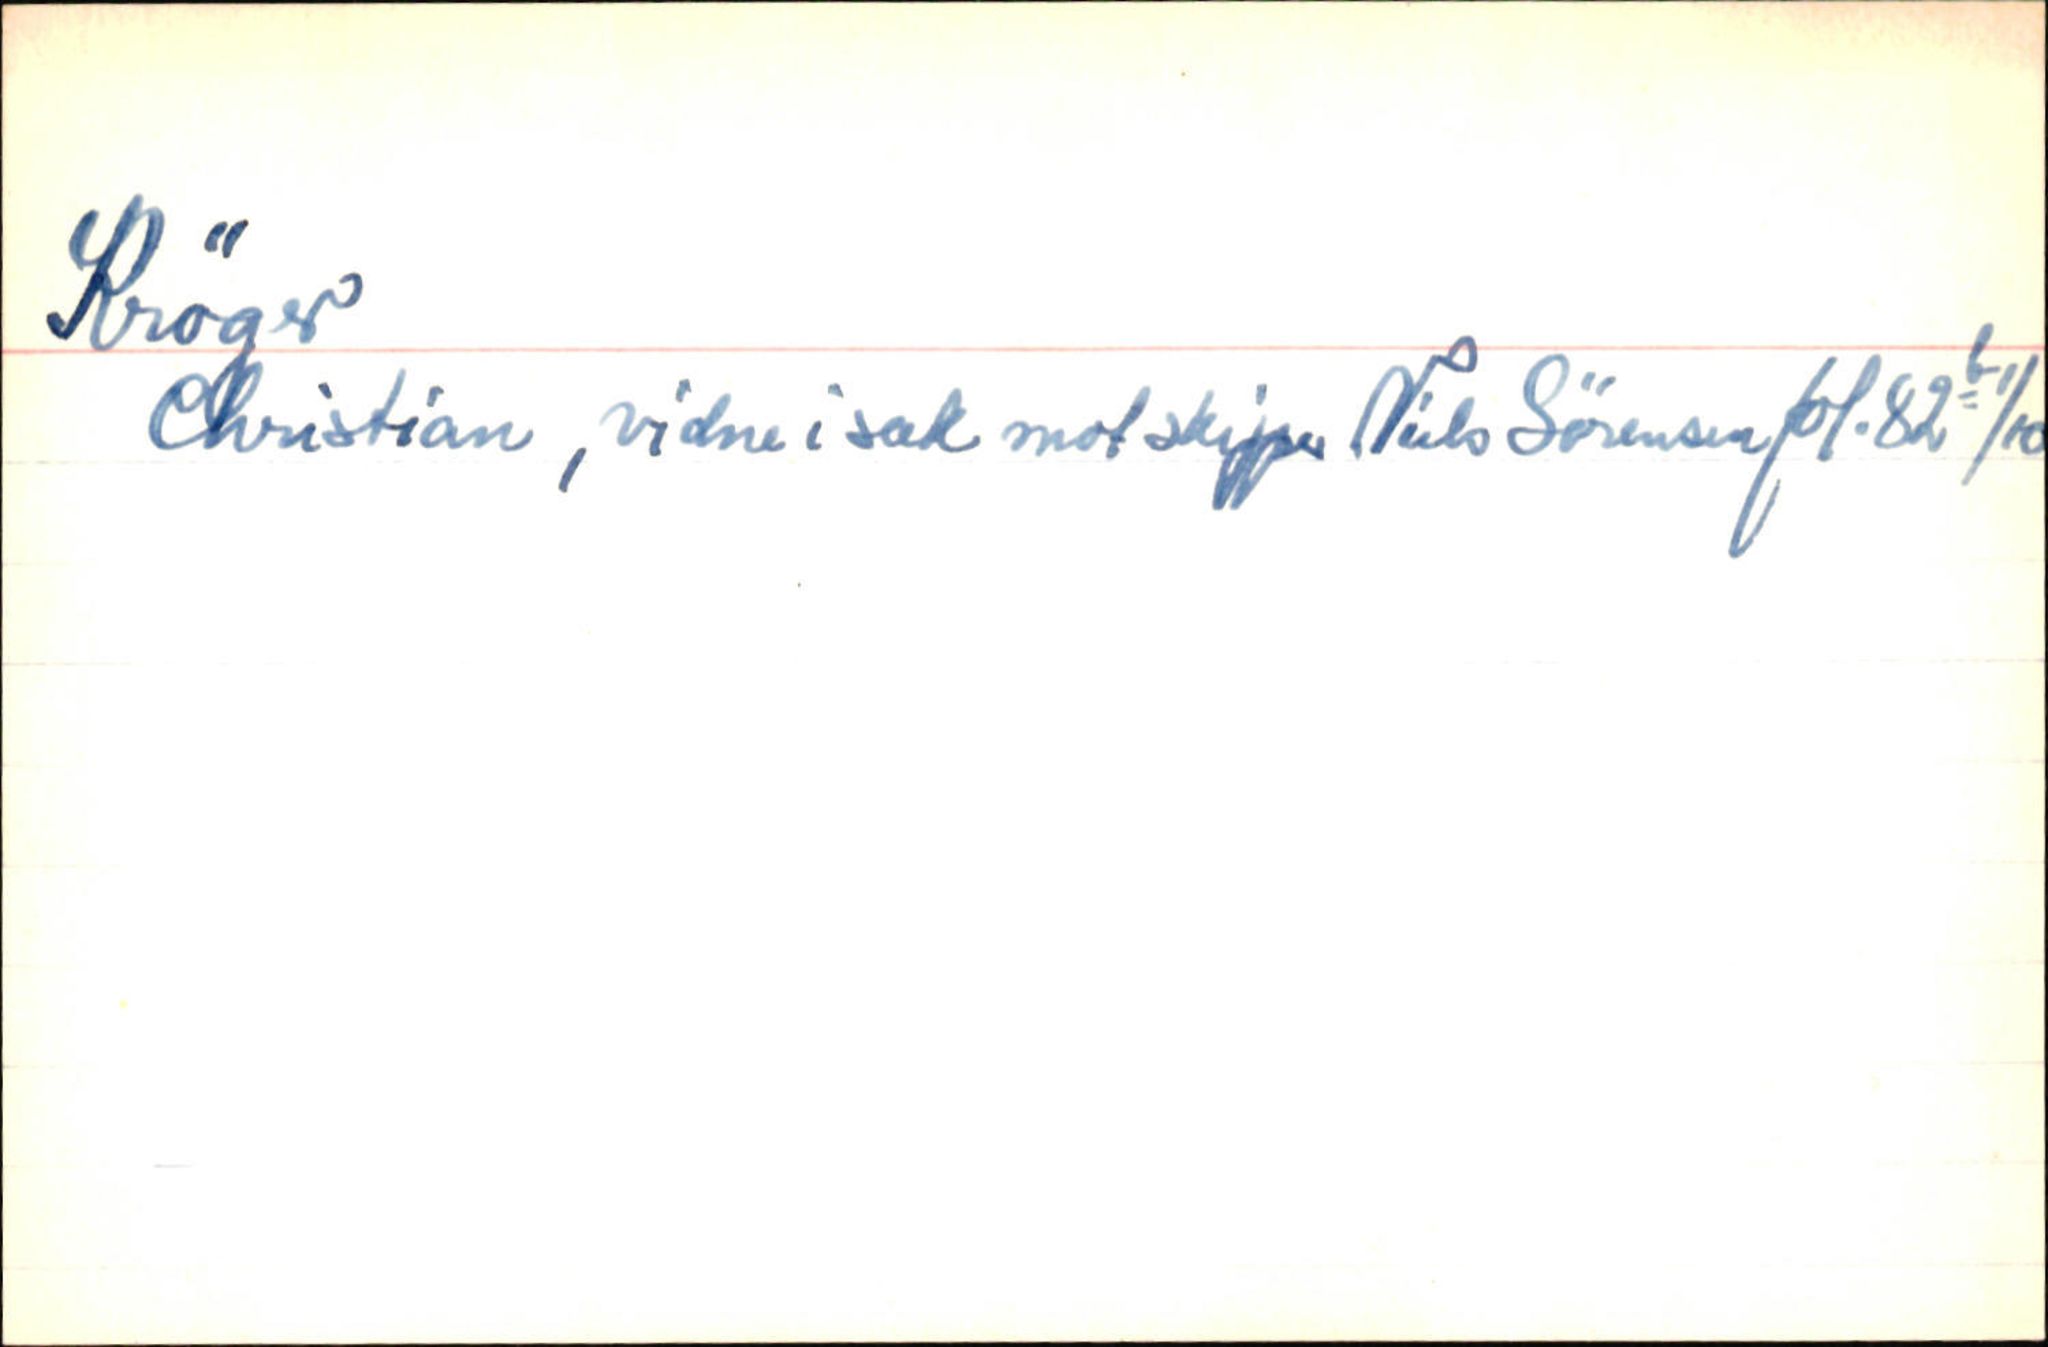 Kröger
Christian, vidne i sak mot skipper Niels Sörensen fol. 82 b 1/10